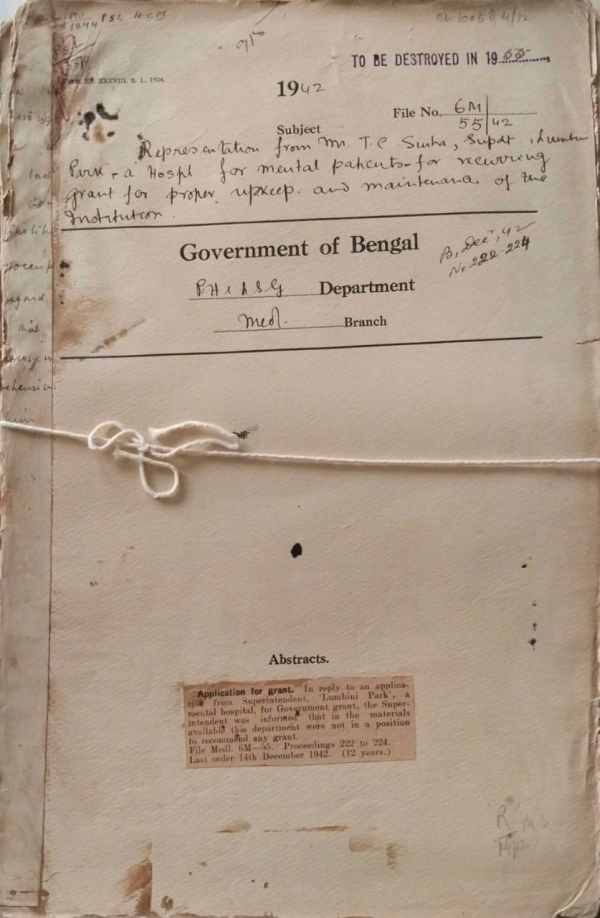 TO BE DESTROYED IN 1955
1942
File No. 6M
55/42
Subject
Representation from Mr. T. C. Sinha, Supdt, Lumbini
Park, a Hospl for mental patients for recurring
grant for proper upkeep and maintenance of the
Institution.
Government of Bengal
P.H & L.S.G Department
Medl. Branch
B, Dec, 42
No. 222-224
Abstracts.
Application for grant. In reply to an applica-
tion from Superintendent, 'Lumbini Park', a
mental hospital, for Government grant, the Super-
intendent was informed that in the materials
available this department were not in a position
to recommend any grant.
File Medl. 6M—55. Proceedings 222 to 224.
Last order 14th December 1942. (12 years.)